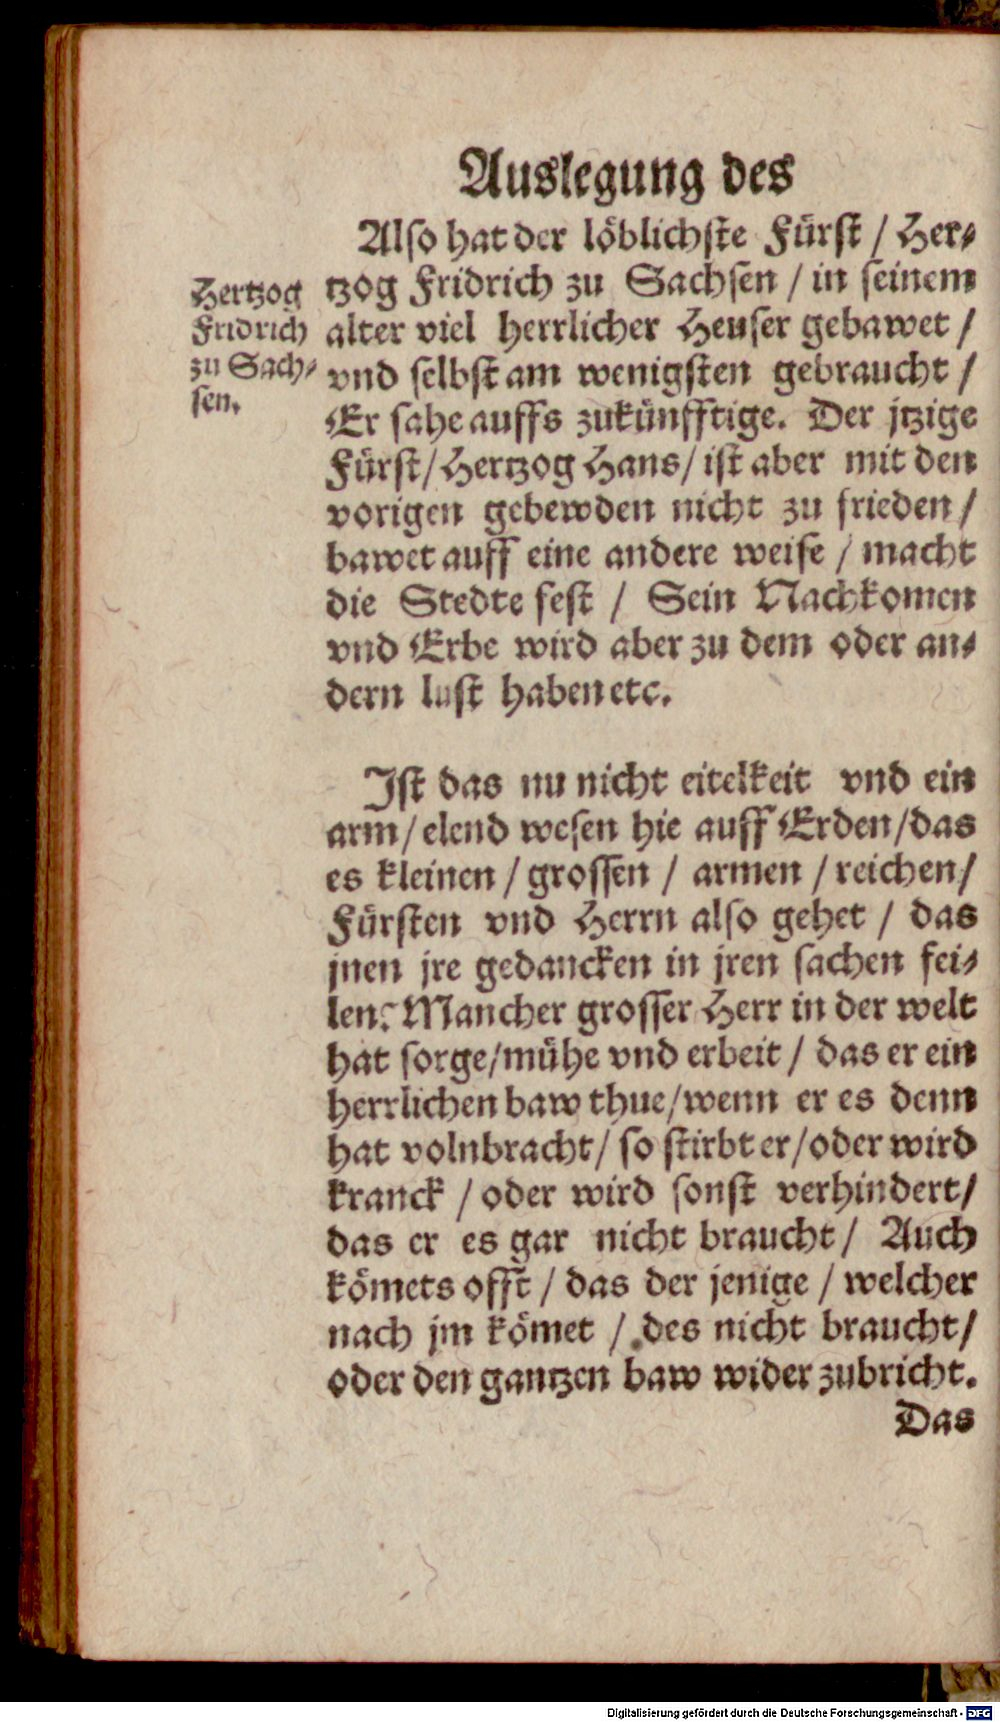 Auslegung des
Also hat der löblichste Fürst / Her⸗
tzog Fridrich zu Sachsen / in seinem
alter viel herrlicher Heuser gebawet /
vnd selbst am wenigsten gebraucht /
Er sahe auffs zukünfftige. Der jtzige
Fürst / Hertzog Hans / ist aber mit den
vorigen gebewden nicht zu frieden /
bawet auff eine andere weise / macht
die Stedte fest / Sein Nachkomen
vnd Erbe wird aber zu dem oder an⸗
dern lust haben etc.
Hertzog
Fridrich
zu Sach⸗
sen.
Ist das nu nicht eitelkeit vnd ein
arm / elend wesen hie auff Erden / das
es kleinen / grossen / armen / reichen /
Fürsten vnd Herrn also gehet / das
jnen jre gedancken in jren sachen fei⸗
len? Mancher grosser Herr in der welt
hat sorge / mühe vnd erbeit / das er ein
herrlichen baw thue / wenn er es denn
hat volnbracht / so stirbt er / oder wird
kranck / oder wird sonst verhindert /
das er es gar nicht braucht / Auch
kömets offt / das der jenige / welcher
nach jm kömet / des nicht braucht /
oder den gantzen baw wider zubricht.
Das
Digitalisierung gefördert durch die Deutsche Forschungsgemeinschaft - DFG